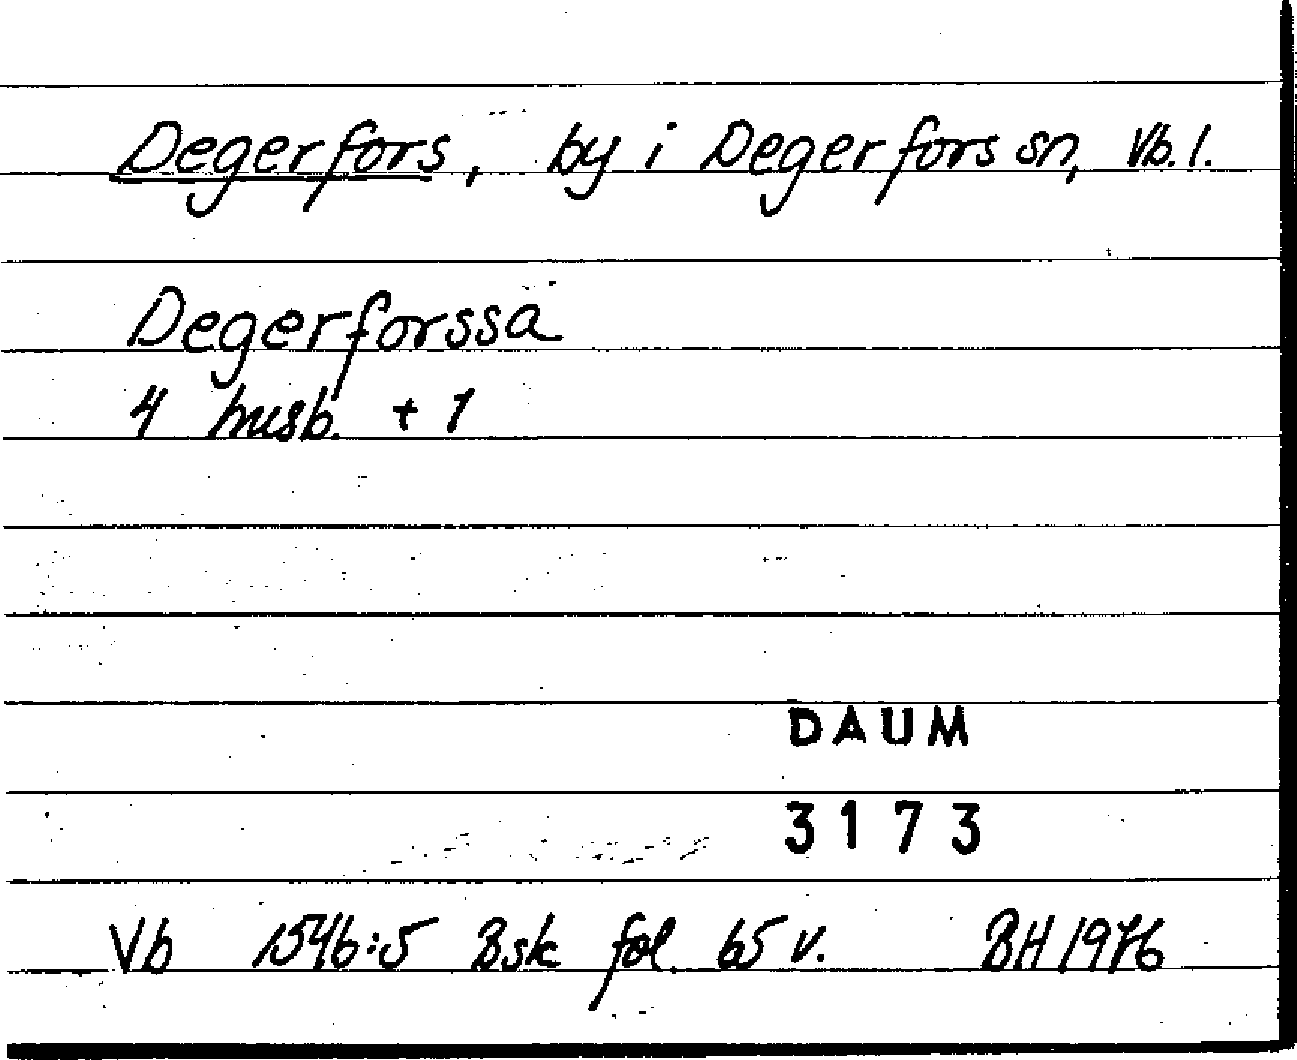 Degerfors, by i Degerfors sn, Vb. l.
Degerforssa
4 husb. + 1
DAUM
3173
Vb 1546:5 Bsk fol. 65 v. BH 1976